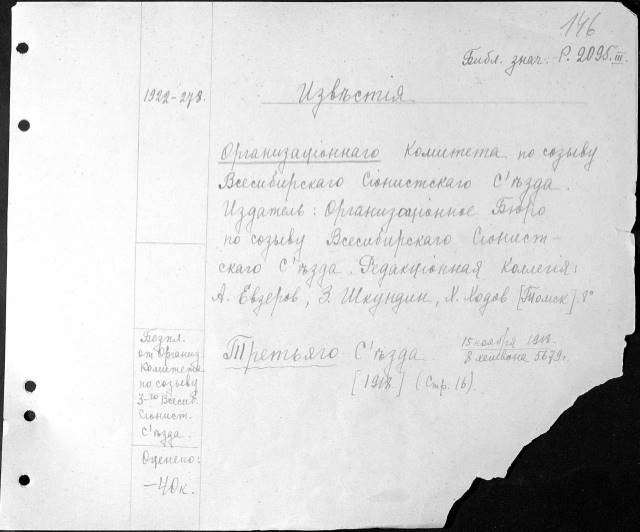 146
Библ. знач. Р. 2095.III.
1922-278.
Извѣстія
Организаціоннаго Комитета по созыву
Всесибирскаго Сіонистскаго С'ѣзда.
Издатель: Организаціонное Бюро
по созыву Всесибирскаго Сіонист-
скаго С'ѣзда. Редакціонная Коллегія:
А. Евзеров, З. Шкундин, Х. Ходов [Томск]. 8°
Третьяго С'ѣзда. 15 ноября 1918.
8 хешвона 5679 г.
[1918] (Стр. 16).
Безпл.
от Организ.
Комитета
по созыву
3-го Всесиб.
Сіонист.
С'ѣзда.
Оценено:
—40к.